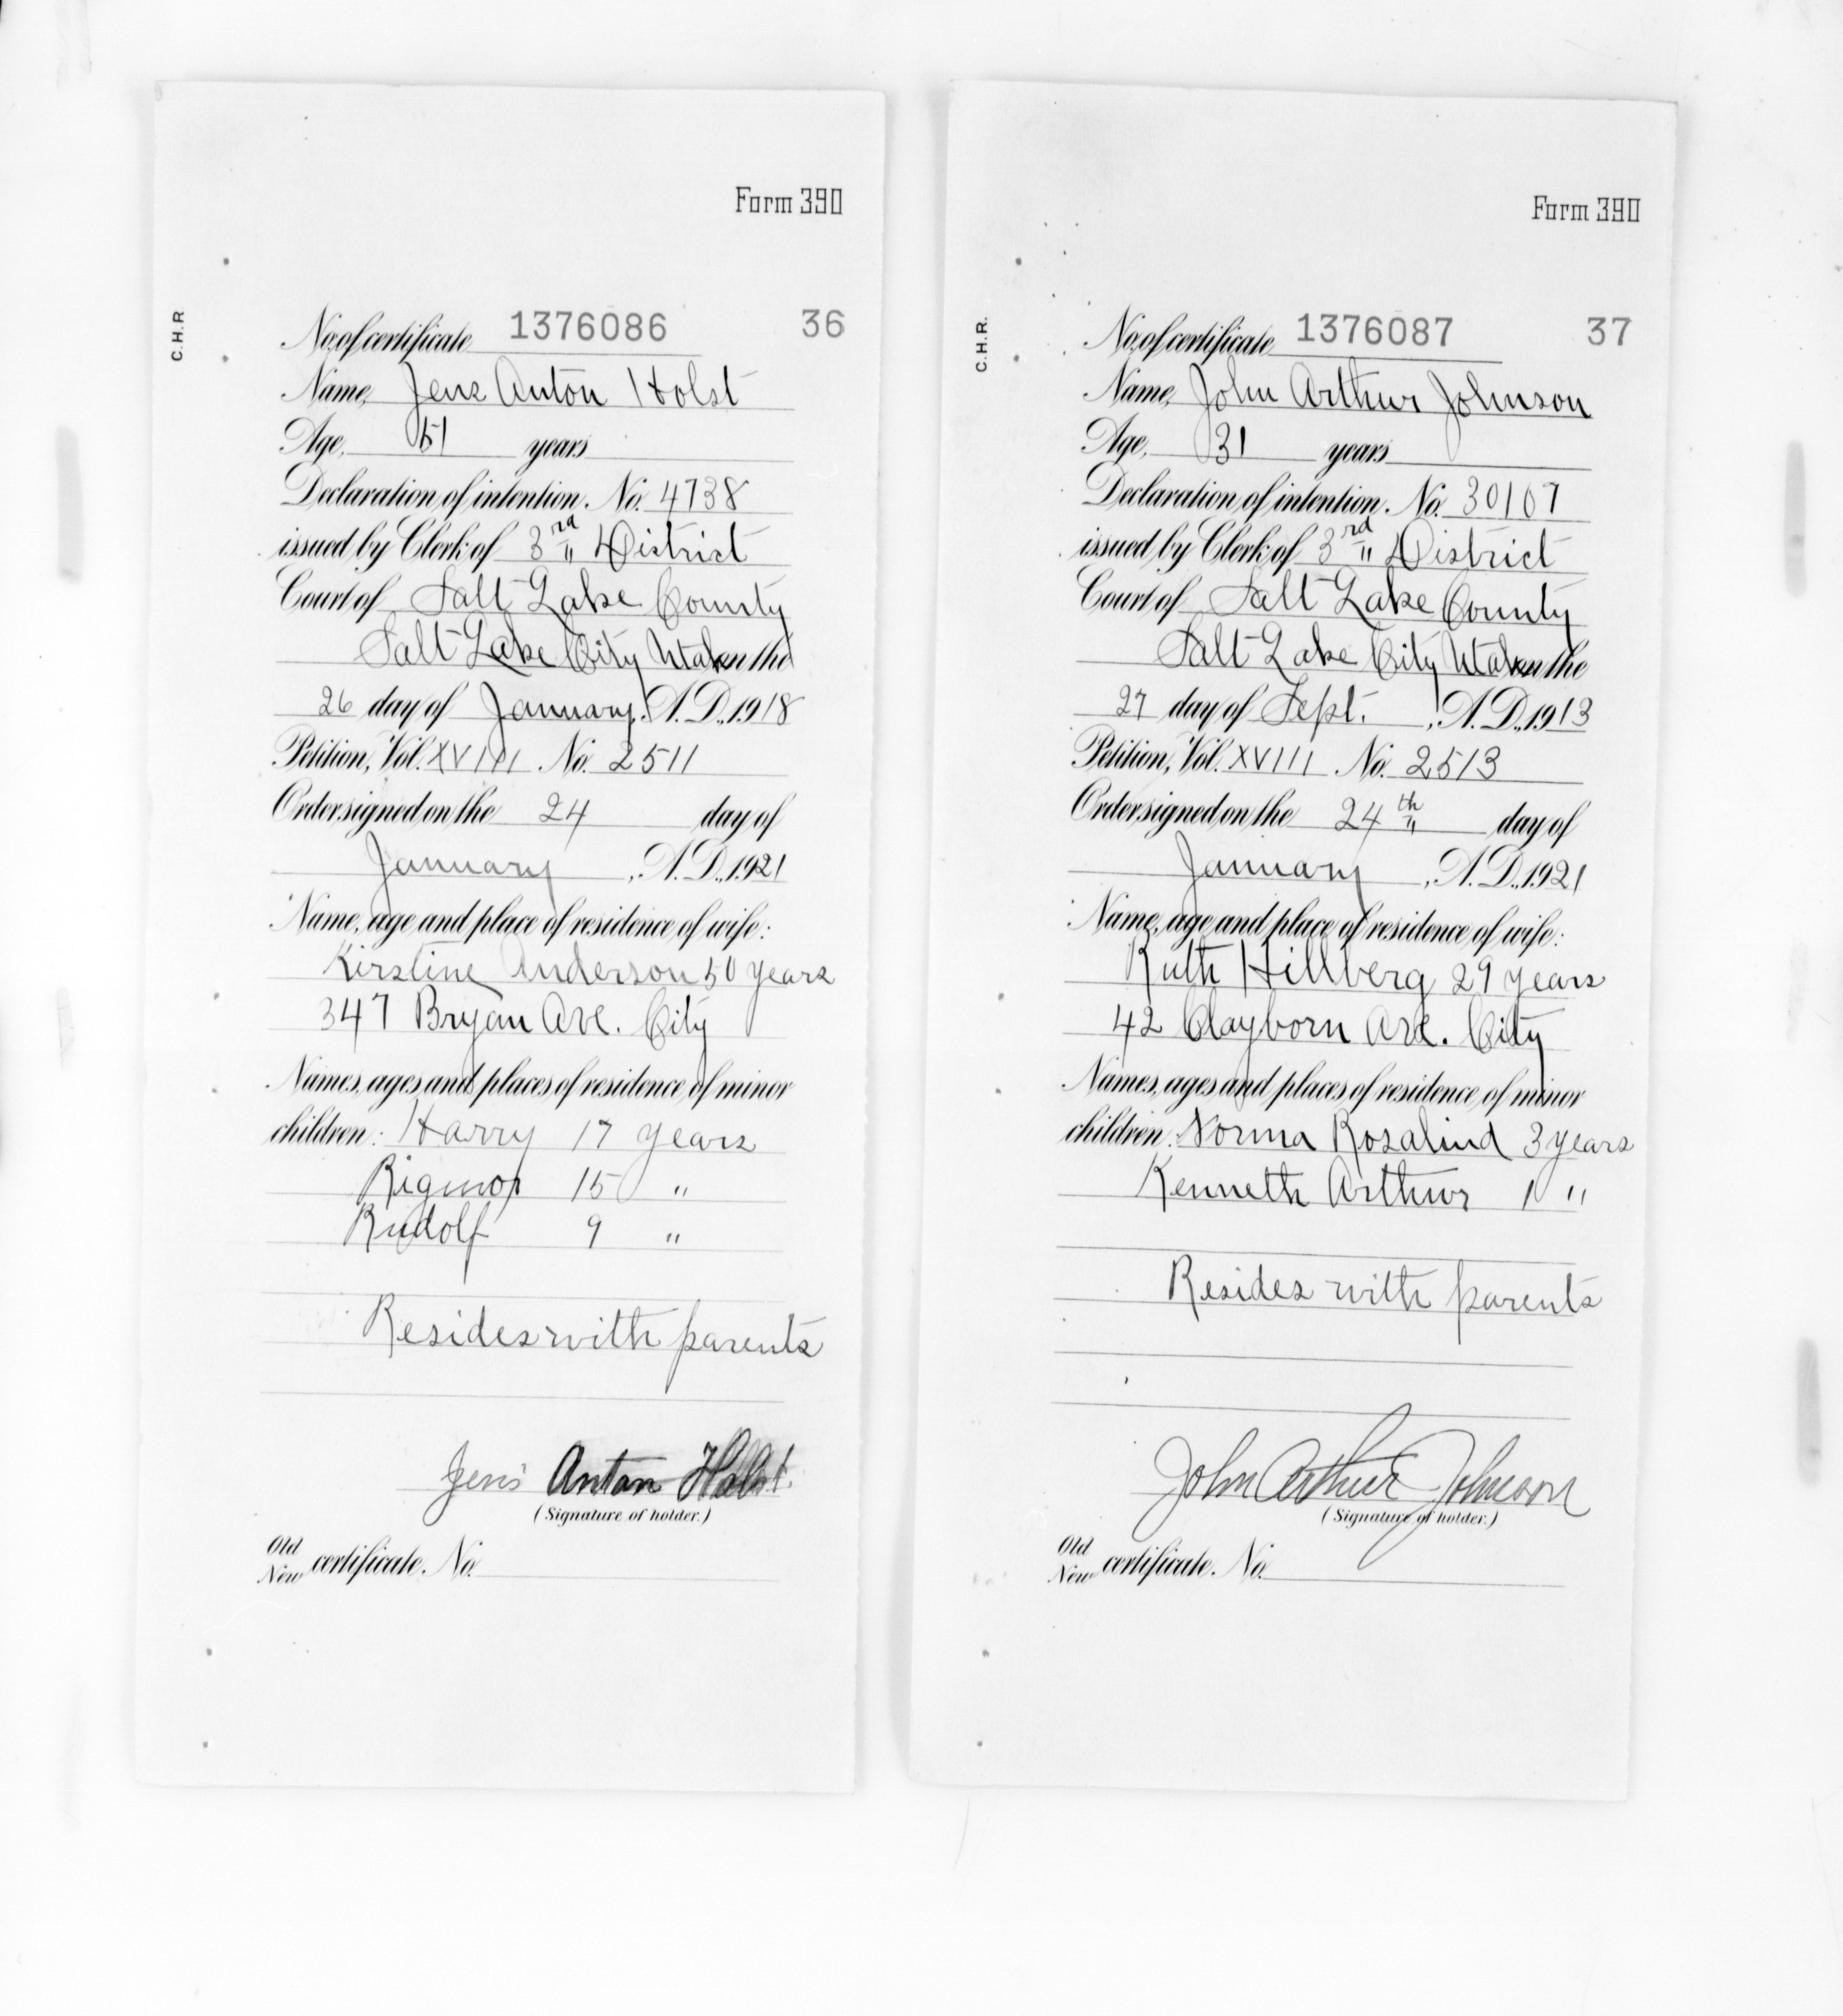 Form 390
C.H.R
No. of certificate 1376086 36
Name, Jens Anton Holst
Age, 51 years
Declaration of intention. No. 4738
issued by Clerk of 3rd District
Court of Salt Lake County
Salt Lake City Utah on the
26 day of January, A.D., 1918
Petition, Vol. XVIII No. 2511
Order signed on the 24 day of
January, A.D., 1921
Name, age and place of residence of wife:
Kirstine Anderson 50 years
347 Bryan Ave. City
Names, ages and places of residence of minor
children: Harry 17 years
Rigmor 15 "
Rudolf 9 "
Resides with parents
Jens Anton Holst.
(Signature of holder.)
Old
New certificate. No.
Form 390
C.H.R.
No. of certificate 1376087 37
Name, John Arthur Johnson
Age, 31 years
Declaration of intention. No. 30107
issued by Clerk of 3rd District
Court of Salt Lake County
Salt Lake City Utah on the
27 day of Sept., A.D., 1913
Petition, Vol. XVIII No. 2513
Order signed on the 24th day of
January, A.D., 1921
Name, age and place of residence of wife:
Ruth Hillberg 29 years
42 Clayborn Ave. City
Names, ages and places of residence of minor
children: Norma Rosalind 3 years
Kenneth Arthur 1 "
Resides with parents
John Arthur Johnson
(Signature of holder.)
Old
New certificate. No.